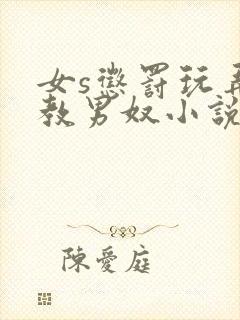 女s懲罰玩弄
教男奴小說
陳愛庭